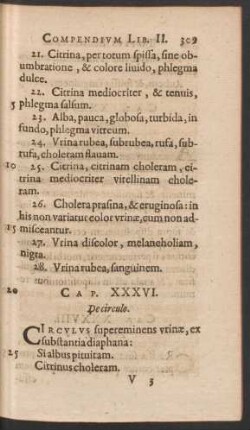 COMPENDIVM LIB. II. 309
21. Citrina, per totum spissa, sine ob-
umbratione, & colore liuido, phlegma
dulce.
22. Citrina mediocriter, & tenuis,
5 phlegma salsum.
23. Alba, pauca, globosa, turbida, in
fundo, phlegma vitreum.
24. Vrina rubea, subrubea, rufa, sub-
rufa, choleram flauam.
10 25. Citrina, citrinam choleram, ci-
trina mediocriter vitellinam chole-
ram.
26. Cholera prasina, & eruginosa: in
his non variatur color vrinæ, cum non ad-
15 misceantur.
27. Vrina discolor, melancholiam,
nigra.
28. Vrina rubea, sanguinem.
20 CAP. XXXVI.
De circulo.
CIRCVLVS supereminens vrinæ, ex
substantia diaphana:
25 Si albus pituitam.
Citrinus choleram.
V 3